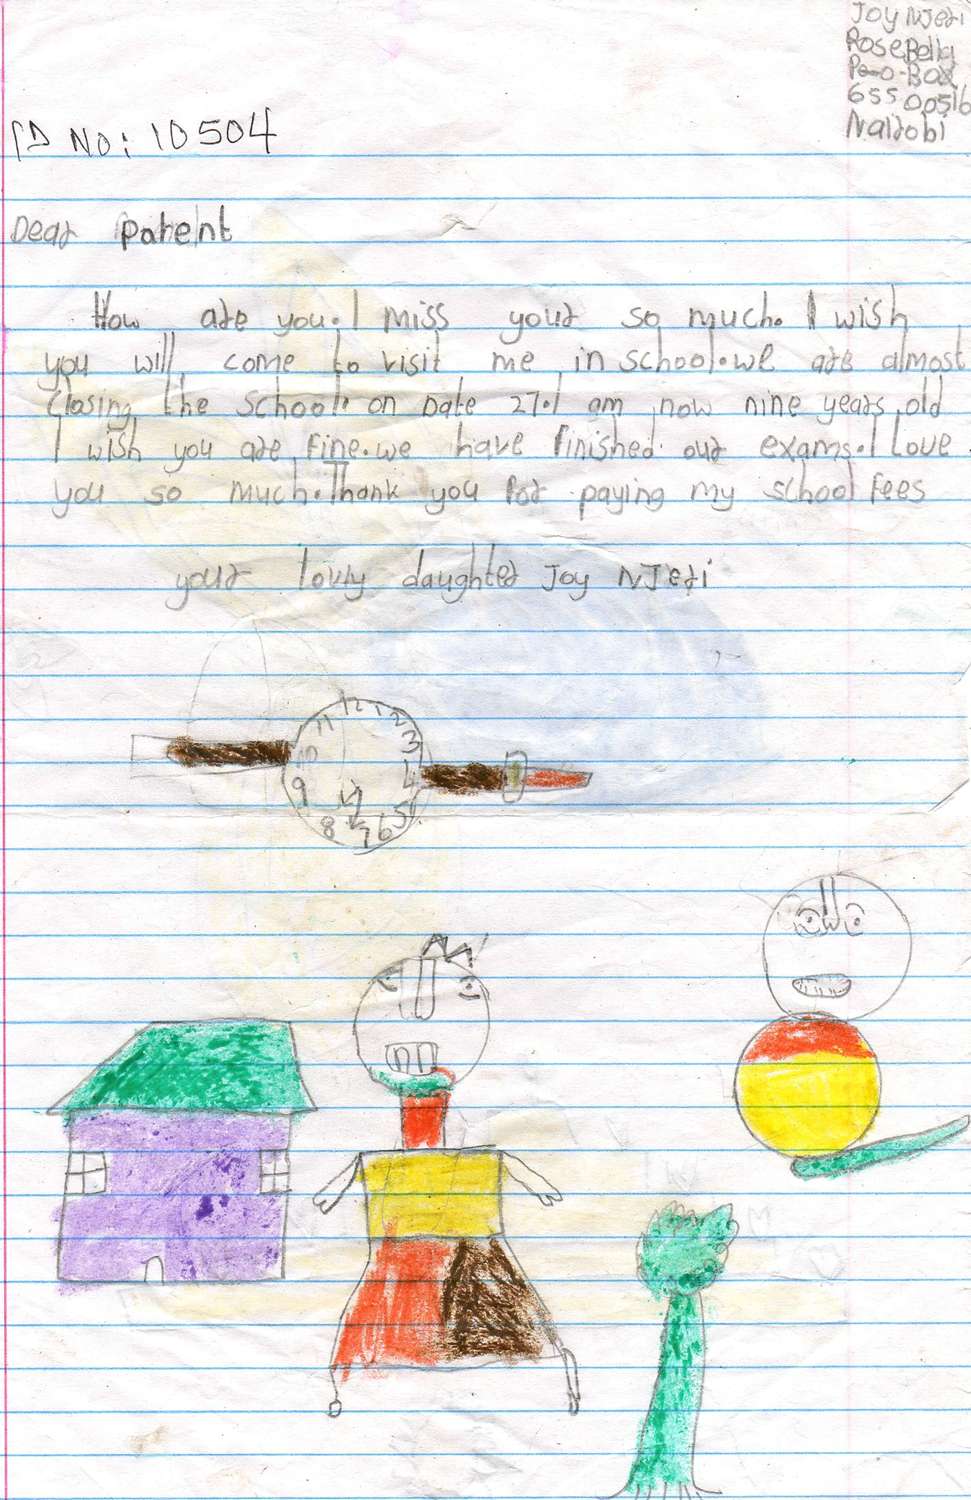 Joy Njeri
Rose Bella
P-o-Box
655 00516
Nairobi
ID NO: 10504
Dear parent
How are you. I miss your so much. I wish
you will come to visit me in school. we are almost
Closing the school. on Date 27. I am now nine years old
I wish you are fine. we have finished our exams. I Love
you so much. Thank you for paying my school fees
your lovly daughter Joy Njeri
12 1 2 3 4 5 6 7 8 9 10 11